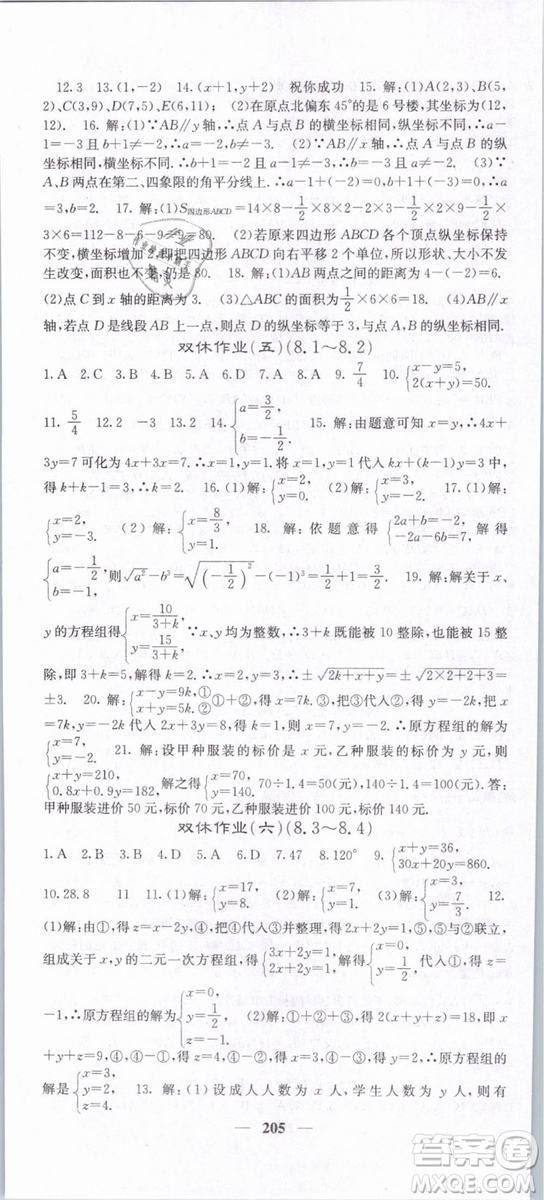 12.3 13.(1,-2) 14.(x+1,y+2) 祝你成功 15.解:(1)A(2,3),B(5,
2),C(3,9),D(7,5),E(6,11); (2)在原点北偏东45°的是6号楼,其坐标为(12,
12). 16.解:(1)∵AB∥y轴,∴点A与点B的横坐标相同,纵坐标不同.∴
a-1=-3,b+1≠-2.∴a=-2,b≠-3. (2)∵AB∥x轴,∴点A与点B的纵
坐标相同,横坐标不同.∴b+1=-2,且a-1≠-3.∴b=-3,a≠-2. (3)∵
A、B两点在第二、四象限的角平分线上.∴a-1+(-2)=0,(b+1)+(-3)=0.∴
a=3,b=2. 17.解:(1)S四边形ABCD=14×8-1/2×2×8-1/2×2×9-1/2
×3×6=112-8-6-9-9=80. (2)若原来四边形ABCD各个顶点纵坐标保持
不变,横坐标增加2,即把四边形ABCD向右平移2个单位,所以形状、大小不发
生改变,面积不变,仍是80. 18.解:(1)A、B两点之间的距离为4-(-2)=6.
(2)点C到x轴的距离为3-(-3)=6. (3)△ABC的面积为1/2×6×6=18.
(4)不变,若点D是线段AB上的任意一点,点D的纵坐标等于3,与横坐标无关.
双休作业(五)(8.1~8.2)
1.A 2.C 3.A 4.D 5.B 6.A 7.D 8.-10 9.7/4 10.{x-y=5, 2(x+y)=50.
11.5/4 12.2 -3 13.2 14.{a=3/2, b=-1/2 15.解:由题意可知x=y,∴4x+
3y=7可化为4x+3x=7.∴x=1,y=1.将x=1,y=1代入kx+(k-1)y=3中,
得k+k-1=3,∴k=2. 16.(1)解:{x=7, y=0. (2)解:{x=2, y=3. 17.(1)解:
{x=2, y=-3. (2)解:{x=8/3, y=1. 18.解:依题意得{2a+b=-2, -2a-6b=7, 解得
{a=-1/2, b=-1, 则√(a²-b³)=√((-1/2)²-(-1)³)=√(1/4+1)=√5/2. 19.解:解关于x、
y的方程组得{x=10/(3+k), y=15/(3+k). ∵x、y均为整数,∴3+k既能被10整除,也能被15整
除,即3+k=5.解得k=2.∴x=2,y=3,∴±√(2k+x+y)=±√(2×2+2+3)=
±3. 20.解:{x-y=9k,① x+y=5k.② ①+②得2x=14k,即x=7k,③把③代入②得y=-2k.把x
=7k,y=-2k代入2x+3y=8得14k-6k=8,解得k=1,∴原方程组的解为
{x=7, y=-2. 21.解:设甲种服装的标价是x元,乙种服装的标价是y元,根据题意得
{x+y=210, 0.8x+0.9y=182, 解之得{x=70, y=140. 70÷1.4=50(元),140÷1.4=100(元).答:
甲种服装进价50元,标价70元;乙种服装进价100元,标价140元.
双休作业(六)(8.3~8.4)
1.A 2.B 3.C 4.D 5.D 6.D 7.47 8.120° 9.{x+y=36, 30x+20y=860.
10.28.8 11 11.(1)解:{x=17, y=14. (2)解:{x=7, y=1. (3)解:{x=4, y=7/3. 12.
(1)解:由①,得z=x-y,④,把④代入③并整理,得2x+2y=1与②联立,
组成关于x,y的二元一次方程组{3x+2y=1, 2x+2y=1. 解得{x=0, y=1/2, 代入④,得z=
-1,∴原方程组的解为{x=0, y=1/2, z=-1/2. (2)解:①+②+③,得2(x+y+z)=18,即x
+y+z=9,④,④-①得z=4,④-②得x=3,④-③得y=2,∴原方程组的
解是{x=3, y=2, z=4. 13.解:(1)设成人人数为x人,学生人数为y人,则有
205
答案圈
MXQE.COM